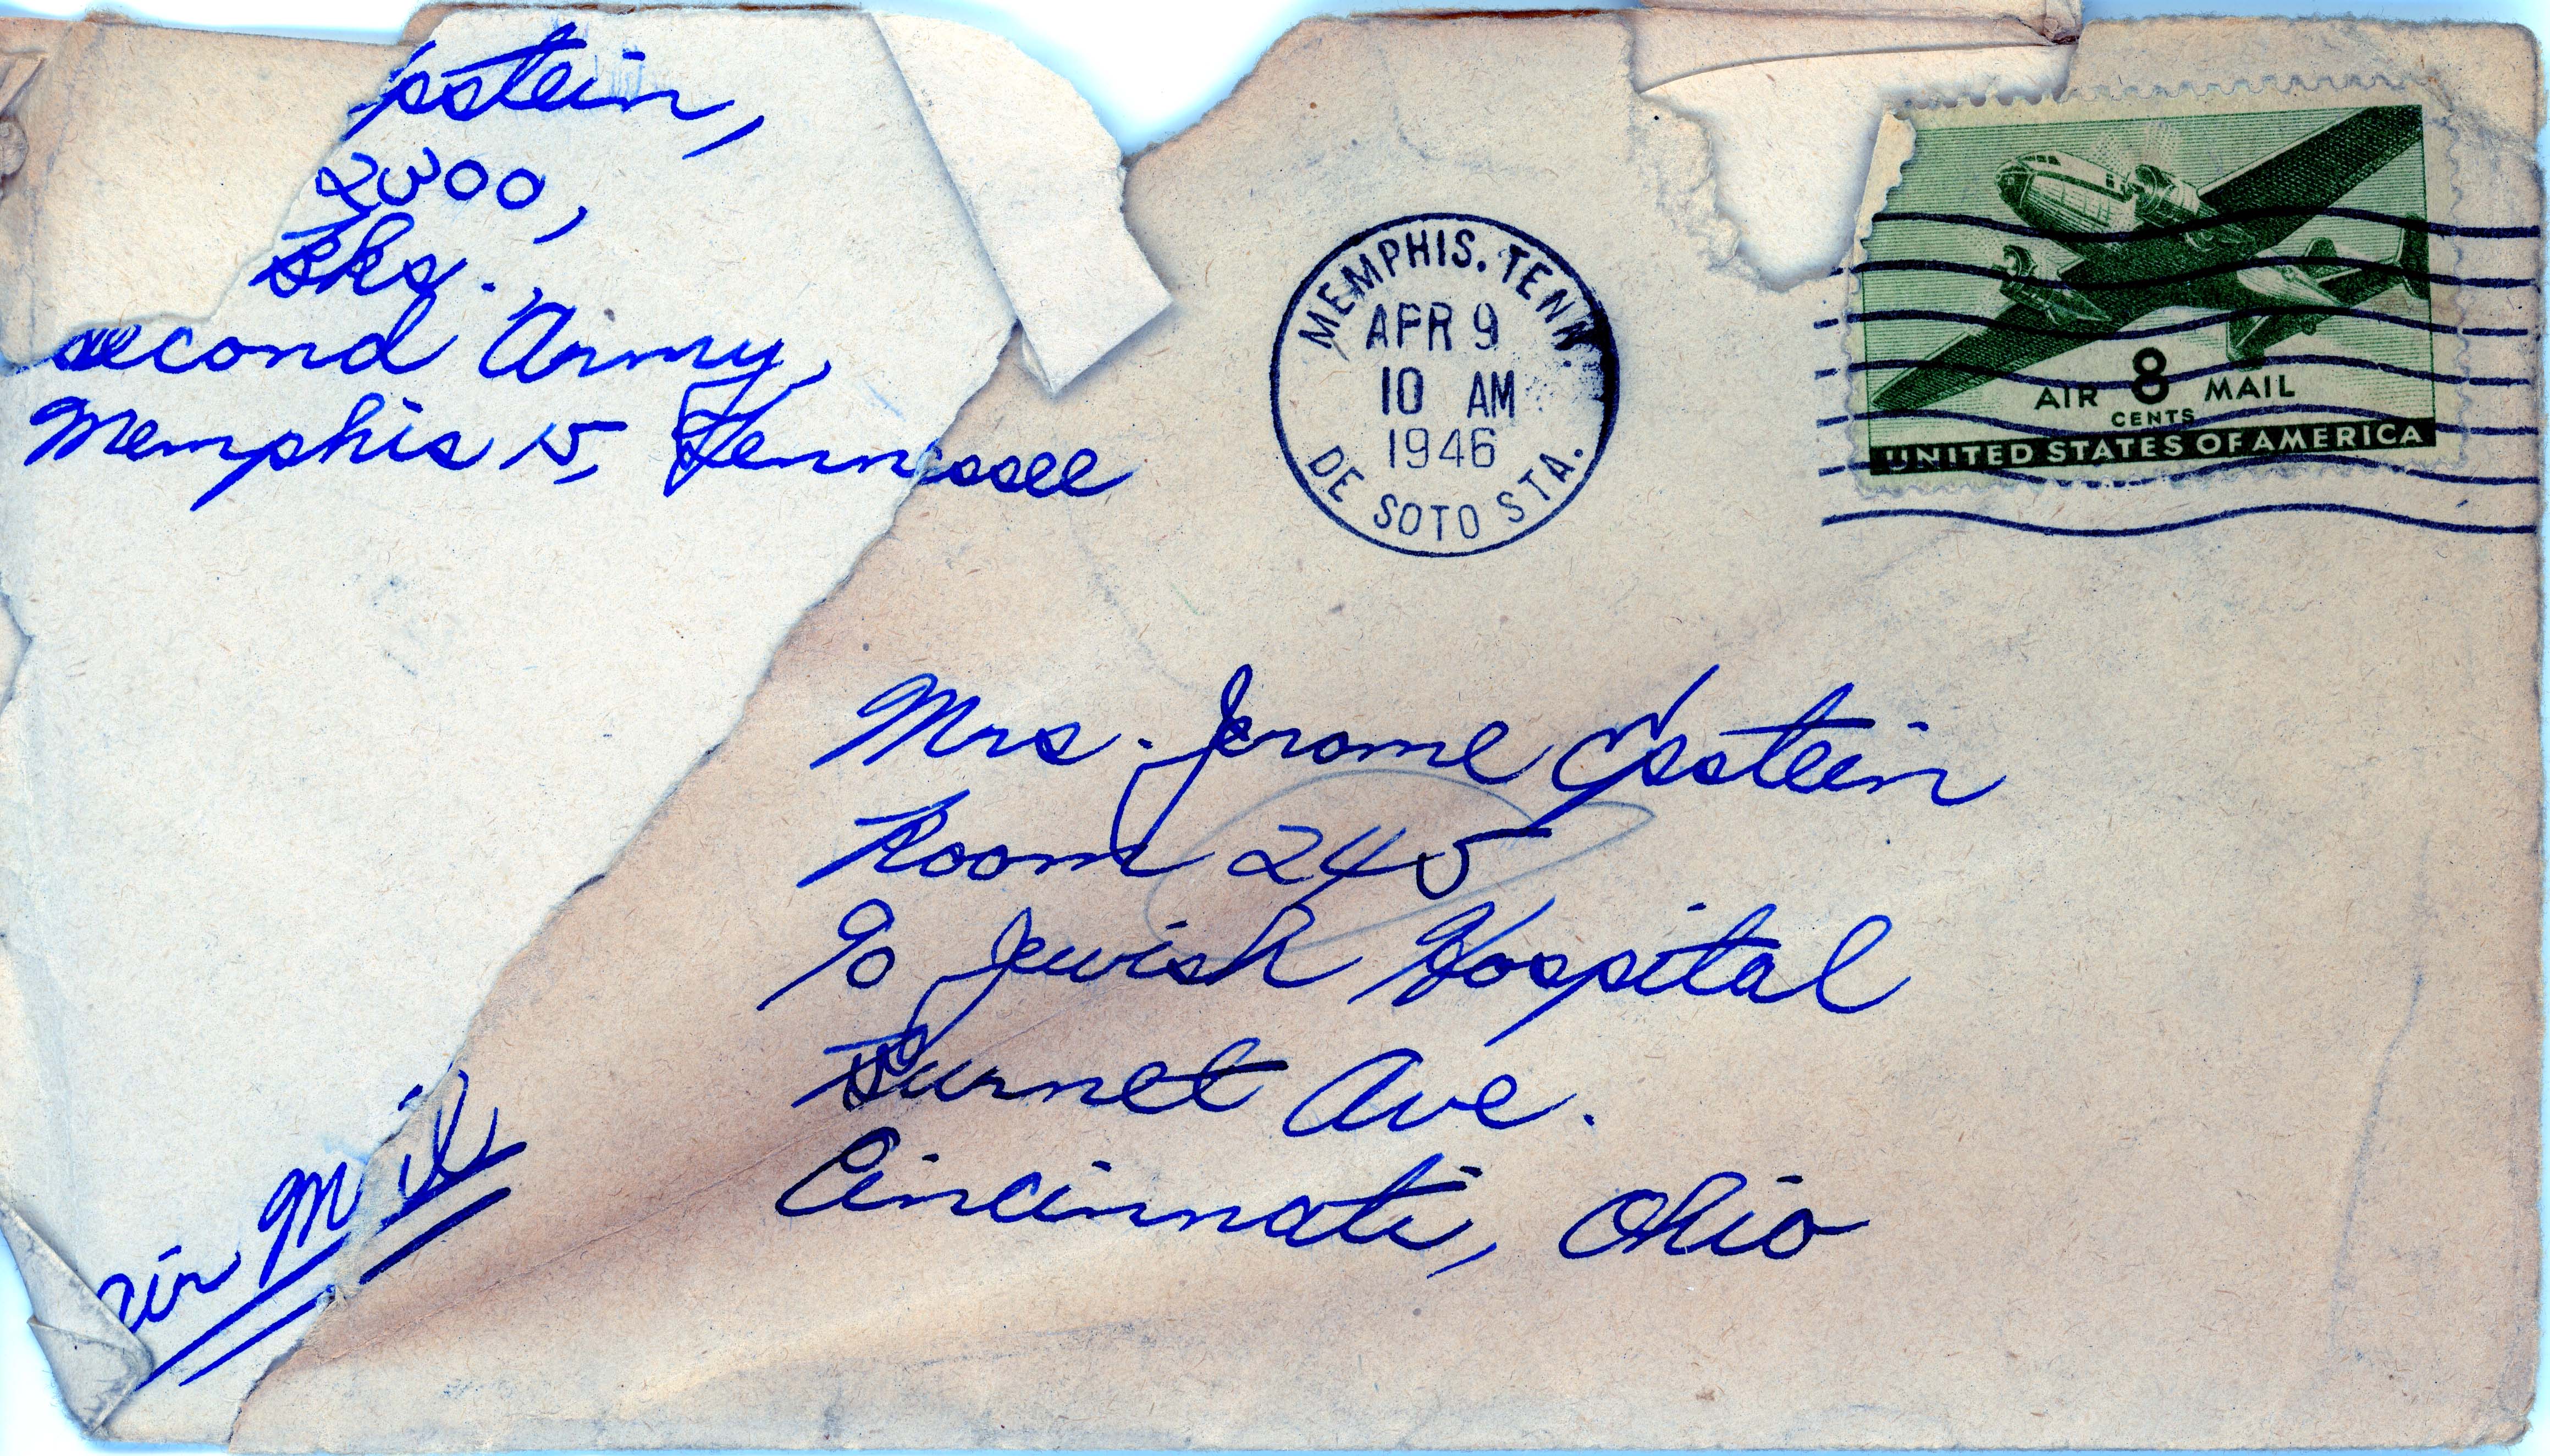 pstein,
2300,
Bks.
Second Army,
Memphis 15, Tennessee
MEMPHIS, TENN.
APR 9
10 AM
1946
DE SOTO STA.
AIR 8 MAIL
CENTS
UNITED STATES OF AMERICA
Mrs. Jerome Epstein
Room 245
c/o Jewish Hospital
Burnet Ave.
Cincinnati, Ohio
Air M il